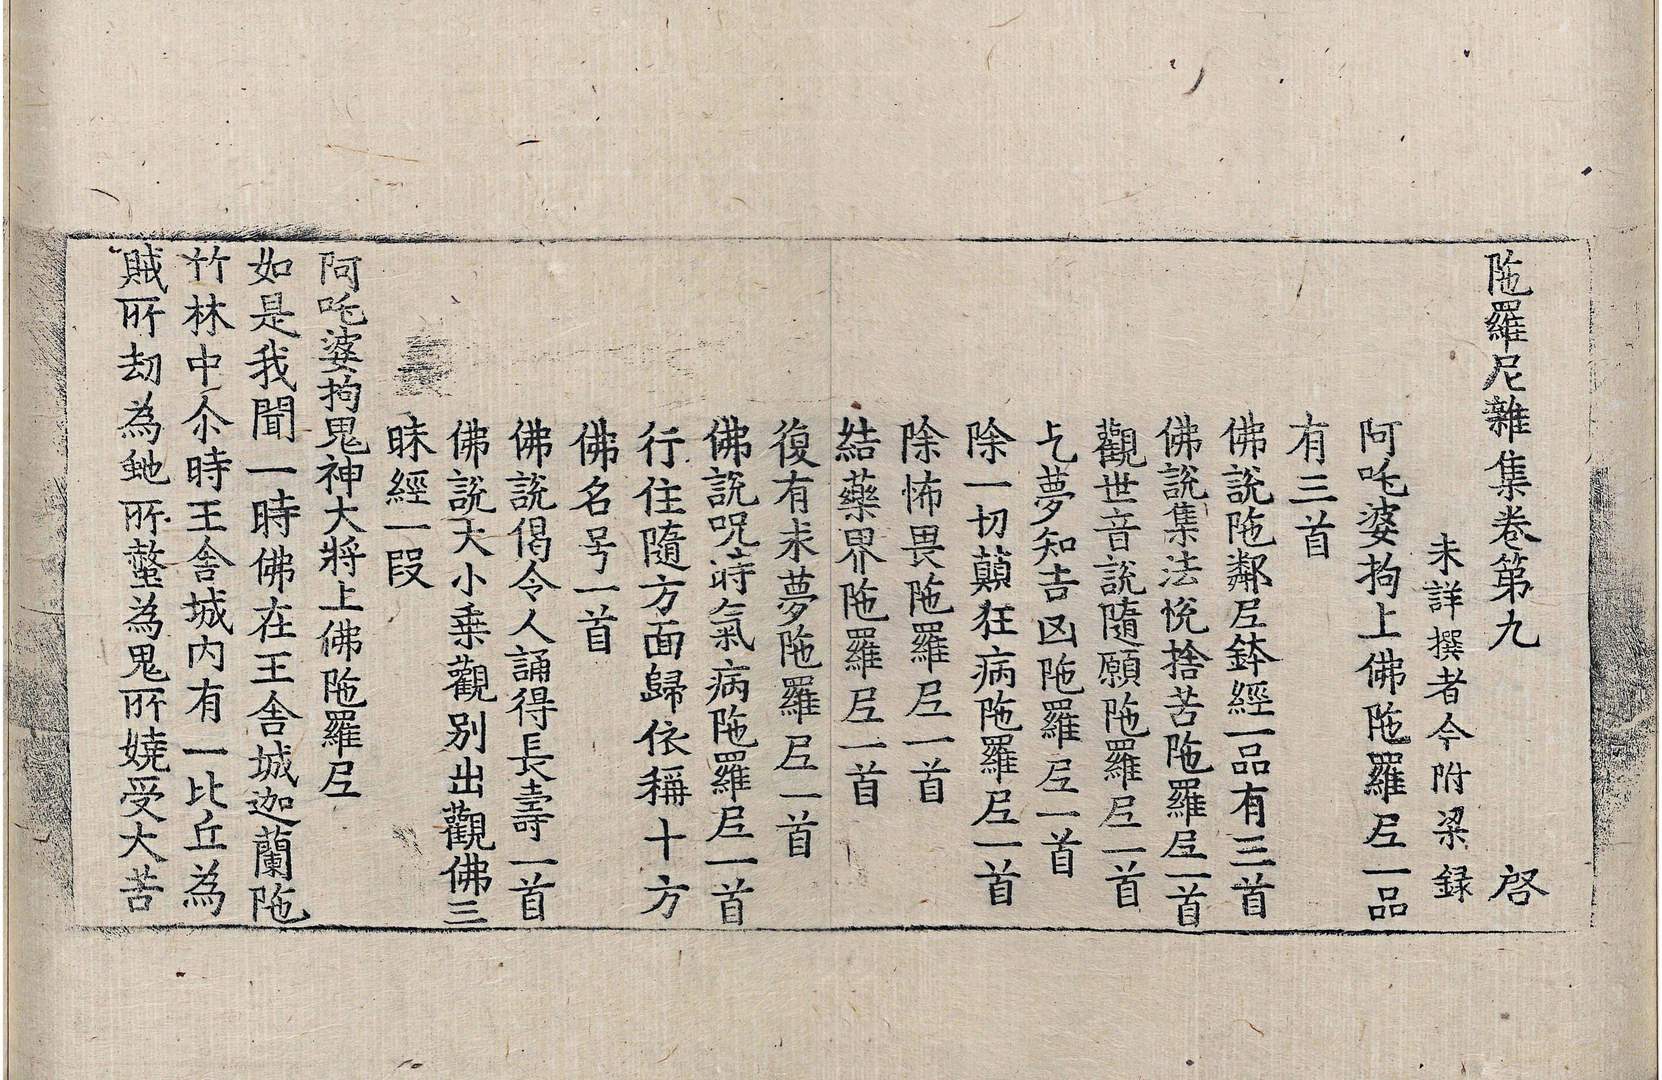 陁羅尼雜集卷第九 啓
未詳撰者今附梁録
阿吒婆拘上佛陁羅尼一品
有三首
佛說陁鄰尼鉢經一品有三首
佛說集法恱捨苦陁羅尼一首
觀世音說隨願陁羅尼一首
乞夢知吉凶陁羅尼一首
除一切顛狂病陁羅尼一首
除怖畏陁羅尼一首
結藥界陁羅尼一首
復有求夢陁羅尼一首
佛說呪時氣病陁羅尼一首
行住隨方面歸依稱十方
佛名号一首
佛說偈令人誦得長壽一首
佛說大小乗觀別出觀佛三
昧經一段
阿吒婆拘鬼神大將上佛陁羅尼
如是我聞一時佛在王舍城迦蘭陁
竹林中尒時王舍城內有一比丘為
賊所劫為虵所螫為鬼所嬈受大苦